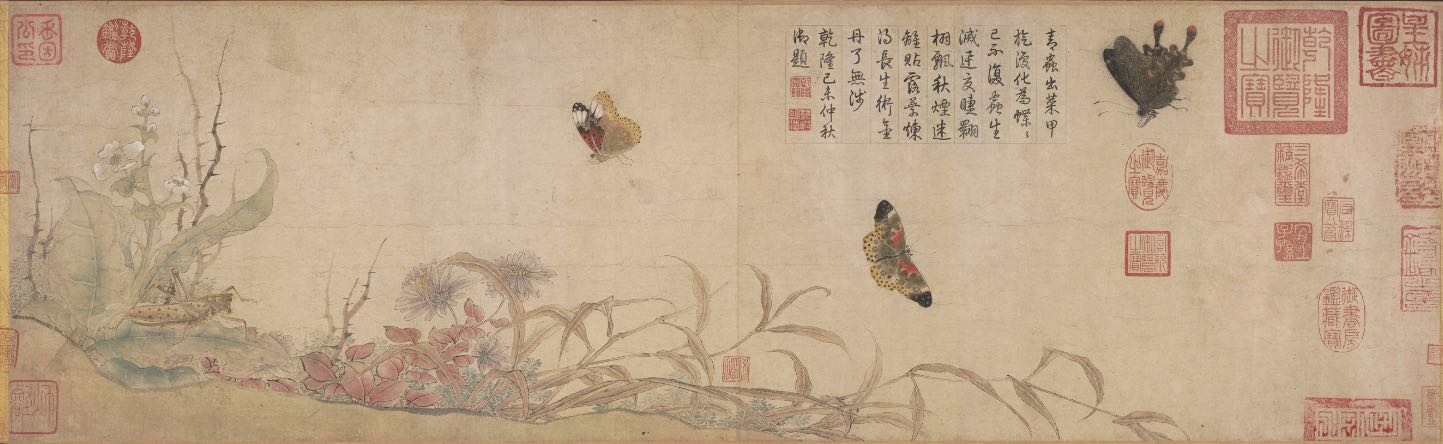 皇姊圖書
乾隆御覽之寶
三希堂精鑑璽
宜子孫
石渠寶笈
御書房鑑藏寶
嘉慶御覽之寶
青蟲出菜甲
旋復化為蝶〻
已不復蟲生
滅速交睫翾
栩飄秋煙迷
離貼露葉煉
得長生術金
丹了無涉
乾隆己未仲秋
御題
乾隆鑒賞